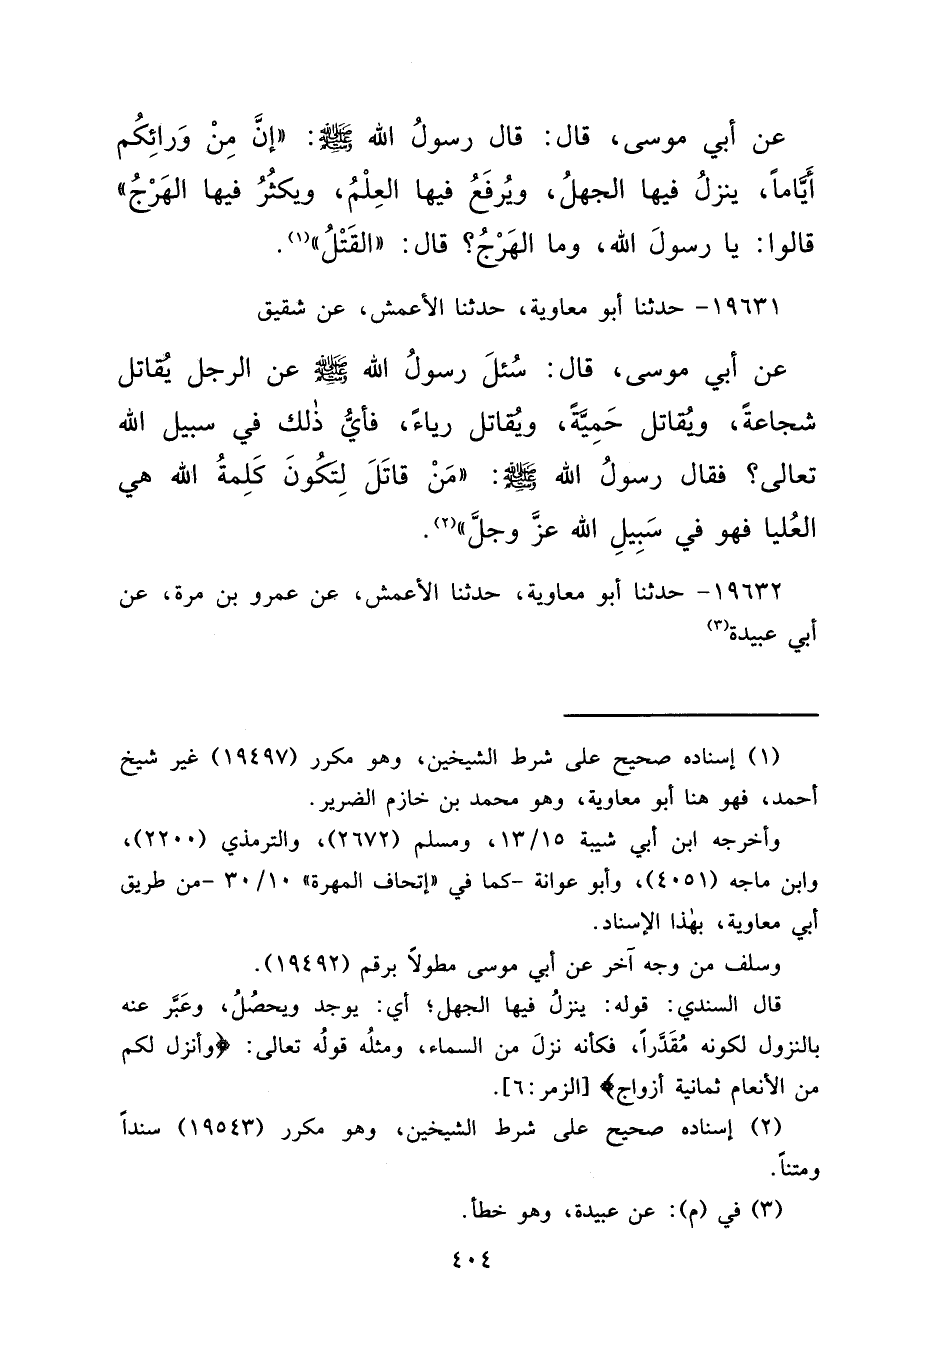 عن أبي موسى، قال: قال رسولُ الله ﷺ: «إنَّ مِنْ وَرائِكُم
أَيَّاماً، ينزلُ فيها الجهلُ، ويُرفَعُ فيها العِلْمُ، ويكثُرُ فيها الهَرْجُ»
قالوا: يا رسولَ الله، وما الهَرْجُ؟ قال: «القَتْلُ»(١).
١٩٦٣١- حدثنا أبو معاوية، حدثنا الأعمش، عن شقيق
عن أبي موسى، قال: سُئلَ رسولُ الله ﷺ عن الرجل يُقاتل
شجاعةً، ويُقاتل حَمِيَّةً، ويُقاتل رياءً، فأيُّ ذٰلك في سبيل الله
تعالى؟ فقال رسولُ الله ﷺ: «مَنْ قاتَلَ لِتَكُونَ كَلِمةُ الله هي
العُليا فهو في سَبِيلِ الله عزَّ وجلَّ»(٢).
١٩٦٣٢- حدثنا أبو معاوية، حدثنا الأعمش، عن عمرو بن مرة، عن
أبي عبيدة(٣)
(١) إسناده صحيح على شرط الشيخين، وهو مكرر (١٩٤٩٧) غير شيخ
أحمد، فهو هنا أبو معاوية، وهو محمد بن خازم الضرير.
وأخرجه ابن أبي شيبة ١٣/١٥، ومسلم (٢٦٧٢)، والترمذي (٢٢٠٠)،
وابن ماجه (٤٠٥١)، وأبو عوانة -كما في «إتحاف المهرة» ٣٠/١٠ -من طريق
أبي معاوية، بهٰذا الإسناد.
وسلف من وجه آخر عن أبي موسى مطولاً برقم (١٩٤٩٢).
قال السندي: قوله: ينزلُ فيها الجهل؛ أي: يوجد ويحصُلُ، وعَبَّر عنه
بالنزول لكونه مُقَدَّراً، فكأنه نزلَ من السماء، ومثلُه قولُه تعالى: ﴿وأنزل لكم
من الأنعام ثمانية أزواج﴾ [الزمر:٦].
(٢) إسناده صحيح على شرط الشيخين، وهو مكرر (١٩٥٤٣) سنداً
ومتناً.
(٣) في (م): عن عبيدة، وهو خطأ.
٤٠٤